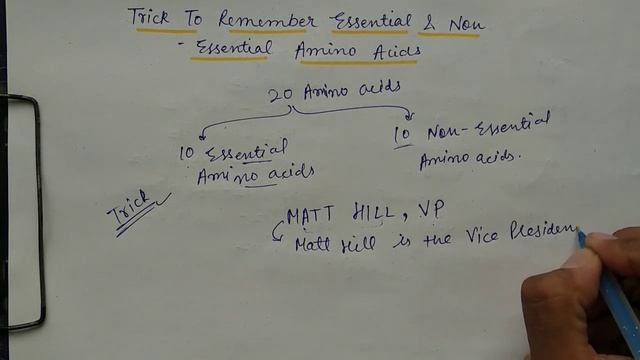 Trick To Remember Essential & Non
- Essential Amino Acids
20 Amino acids
10 Essential
Amino acids
10 Non-Essential
Amino acids.
Trick
MATT HILL, VP
Matt Hill is the Vice Presiden